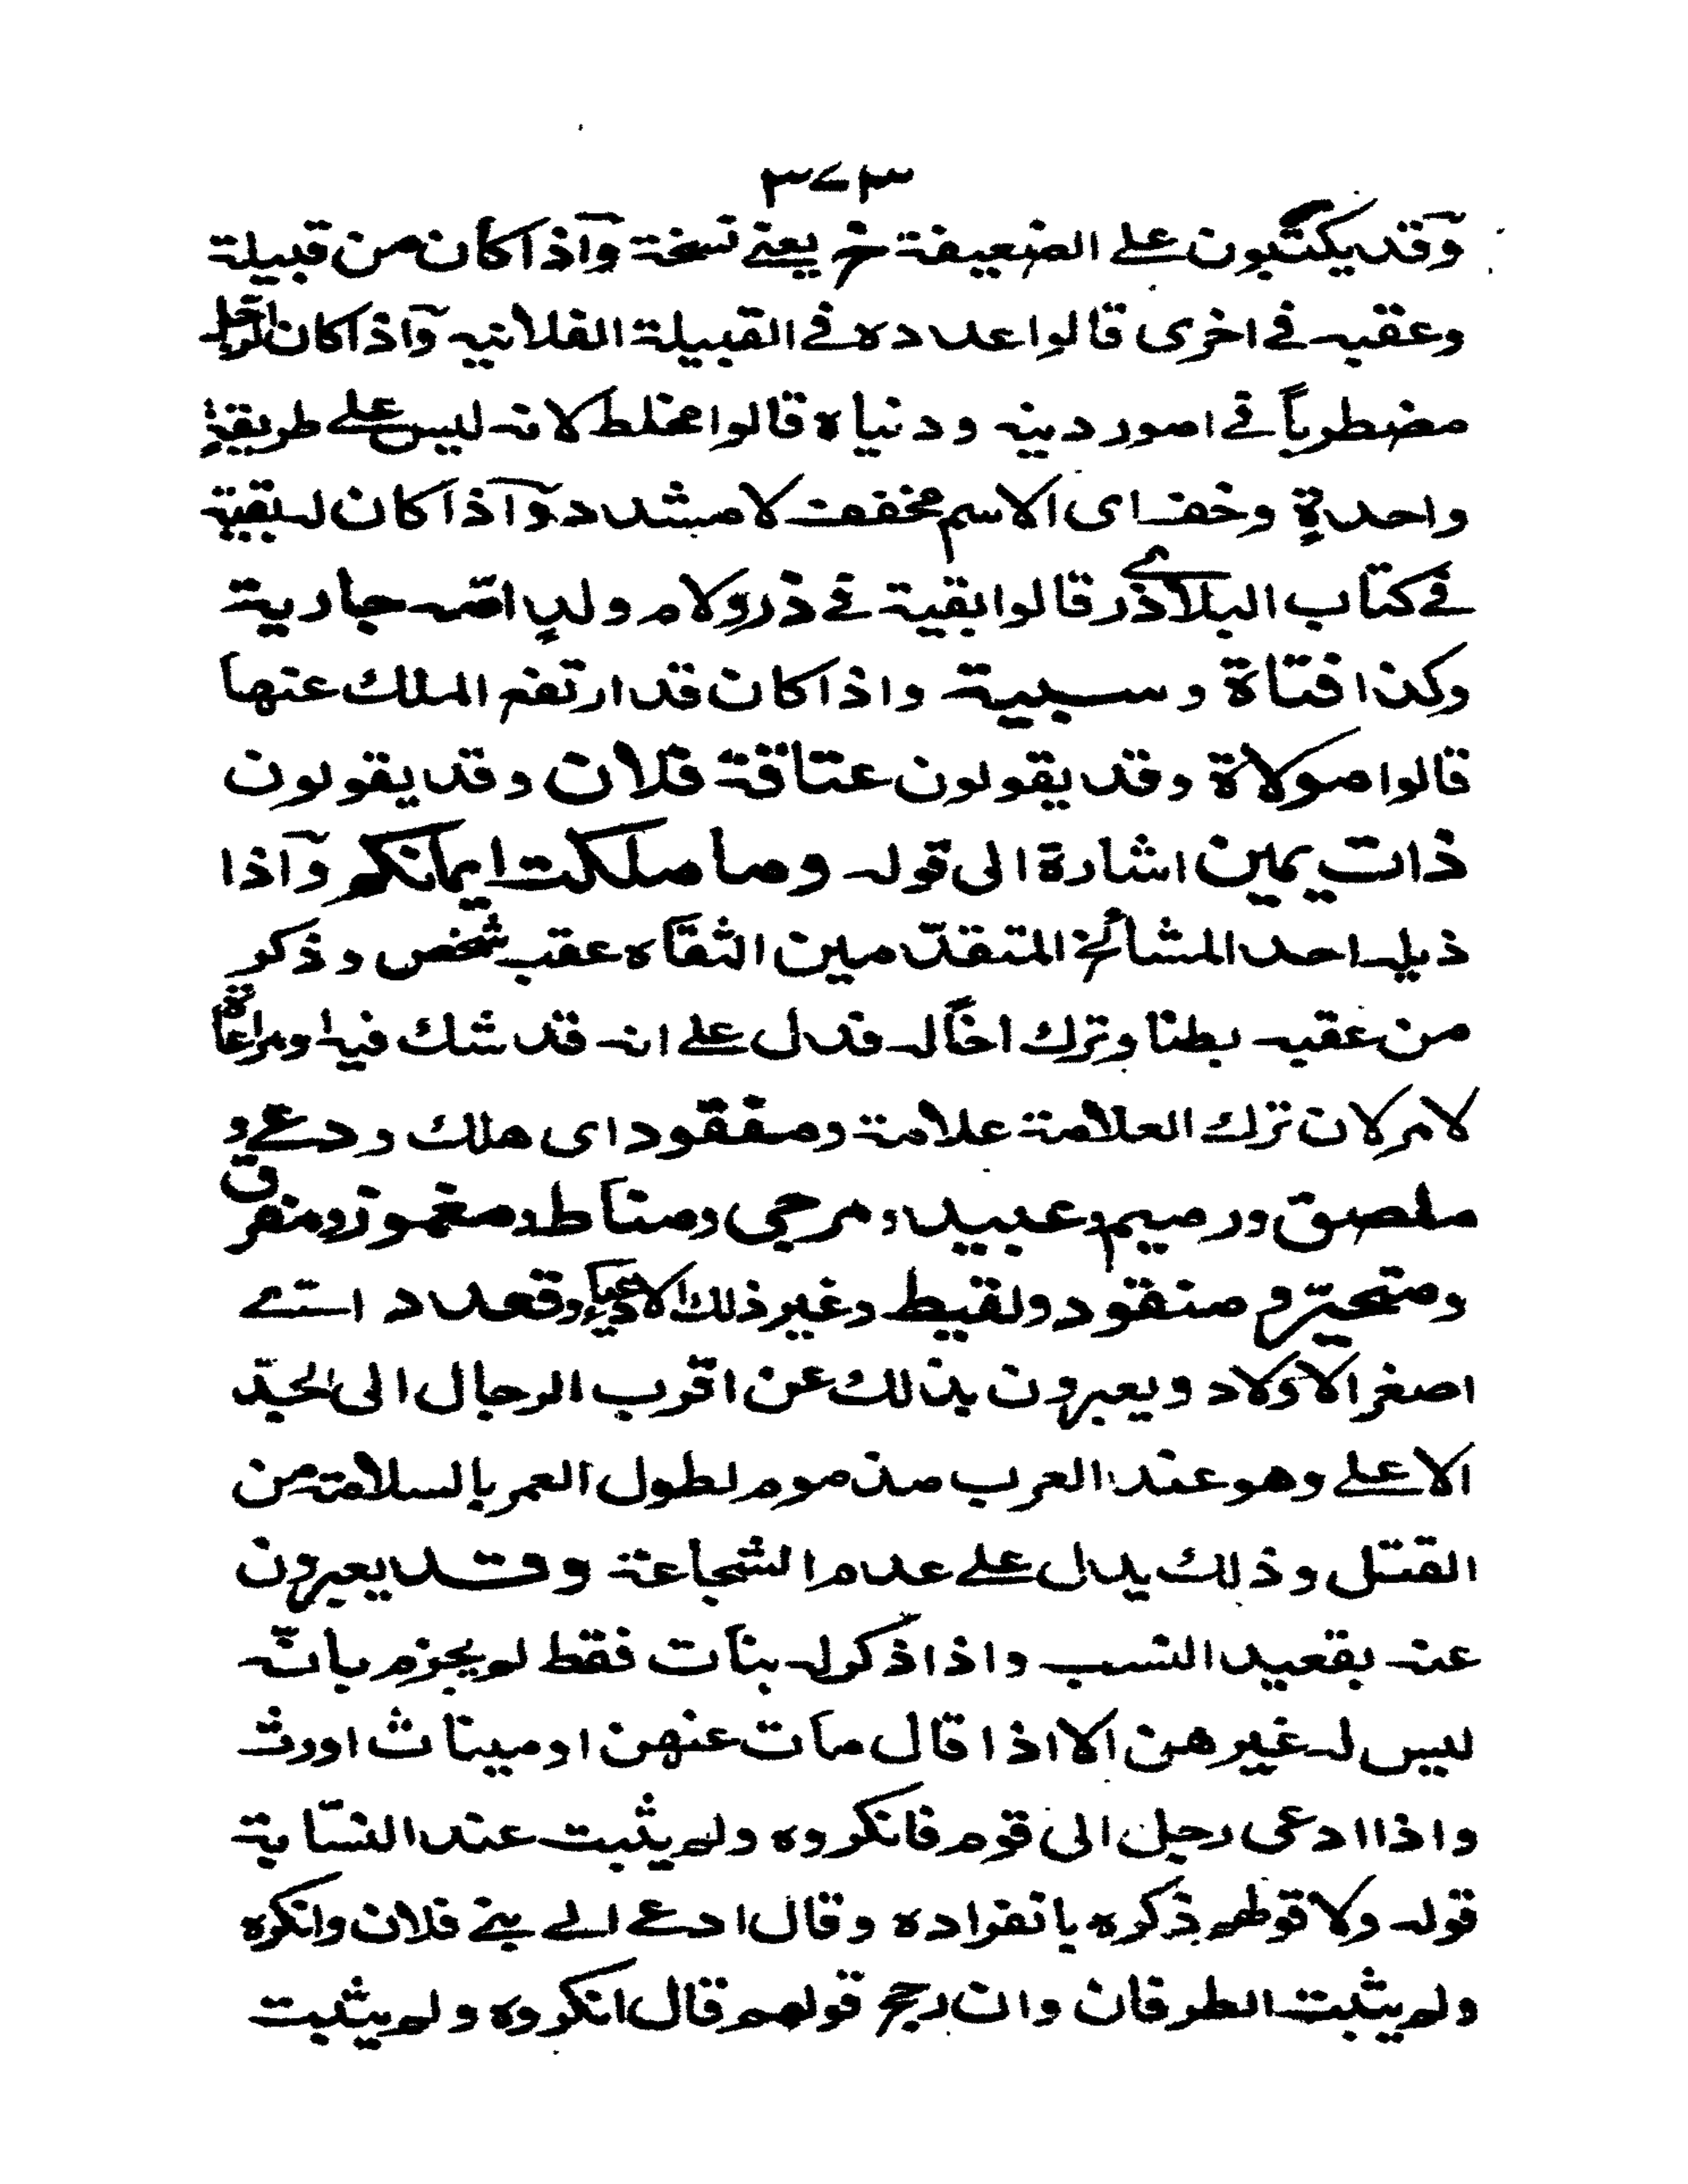 ٣٧٣
وقد يكتبون على الضعيفة خ يعنے نسخة وآذا كان من قبيلة
وعقبه فے اخرى قالوا عدده فے القبيلة الفلانيه وآذا كان
مضطرباً فے امور دينه ودنياه قالوا مخلط لانه ليس علے طريقةٍ
واحدةٍ وخف اى الاسم مخفف لا مشدد وآذا كان له بقية
فے كتاب البلاذرے قالوا بقية فے ذر ولام ولد امه جارية
وكذا فتاة وسبية واذا كان قد ارتفع الملك عنها
قالوا مولاة وقد يقولون عتاقة فلان وقد يقولون
ذات يمين اشارة الى قوله وما ملكت ايمانكم وآذا
ذيل احد المشائخ المتقدّمين الثقاه عقب شخص وذكر
من عقبه بطنا وترك اخاً له فدل علے انه قد شك فيه او مراعاة
لامر لان ترك العلامة علامة ومفقود اى هلك ودعے و
ملصق ورميم وعبيد ومرجى ومناط ومغموز ومنفرق
ومتحيّر ومنقود ولقيط وغير ذلك الادعياء وقعدد استے
اصغر الاولاد ويعبرون بذلك عن اقرب الرجال الى الجدّ
الاعلے وهو عند العرب مذموم لطول العمر بالسلامة من
القتل وذلك يدل علے عدم الشجاعة وقد يعبرون
عنه بقعيد النسب واذا ذكر له بنات فقط لم يجزم بانّه
ليس له غيرهن الا اذا قال مات عنهن او ميناث اورث
واذا ادعى رجل الى قوم فانكروه ولم يثبت عند النسّابة
قوله ولا قولهم ذكره بانفراده وقال ادعے الے بنے فلان وانكره
ولم يثبت الطرفان وان رجح قولهم قال انكروه ولم يثبت